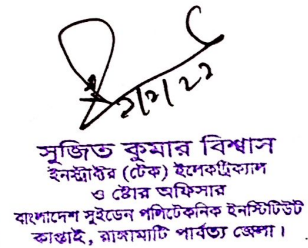 ২/২/২২
সুজিত কুমার বিশ্বাস
ইনস্ট্রাক্টর (টেক) ইলেকট্রিক্যাল
ও ষ্টোর অফিসার
বাংলাদেশ সুইডেন পলিটেকনিক ইনস্টিটিউট
কাপ্তাই, রাঙ্গামাটি পার্বত্য জেলা।